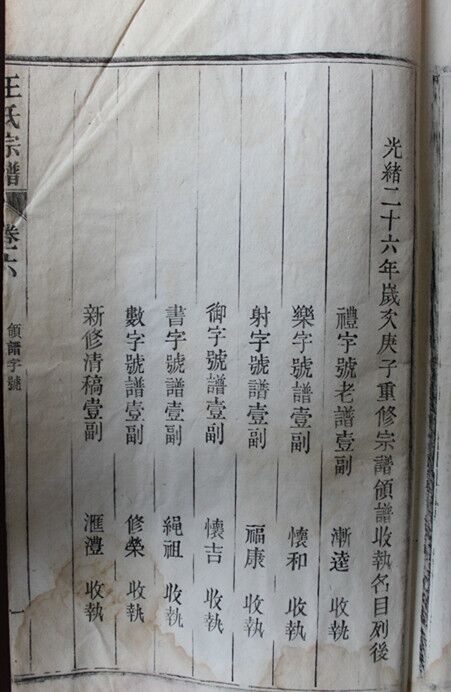 光緒二十六年歲次庚子重修宗譜領譜收執名目列後
禮字號老譜壹副 漸逵 收執
樂字號譜壹副 懷和 收執
射字號譜壹副 福康 收執
御字號譜壹副 懷吉 收執
書字號譜壹副 繩祖 收執
數字號譜壹副 修榮 收執
新修清稿壹副 滙澧 收執
王氏宗譜 卷六 領譜字號 一